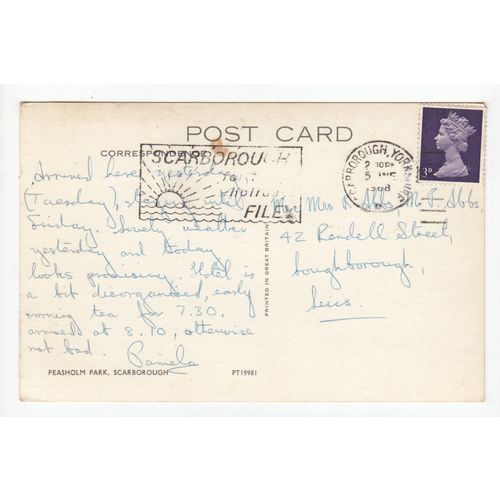 POST CARD
CORRESPONDENCE
SCARBOROUGH
for
holidays
FILEY
SCARBOROUGH, YORKSHIRE
5
1968
3D
Arrived here yesterday
(Tuesday), staying until
Friday. Lovely weather
yesterday and today
looks promising. Hotel is
a bit disorganised, early
morning tea for 7.30.
arrived at 8.10, otherwise
not bad. Pamela
PRINTED IN GREAT BRITAIN
Mrs R. Ibbs, M. P. Ibbs
42 Rendell Street,
Loughborough,
Leics.
PEASHOLM PARK, SCARBOROUGH
PT19981